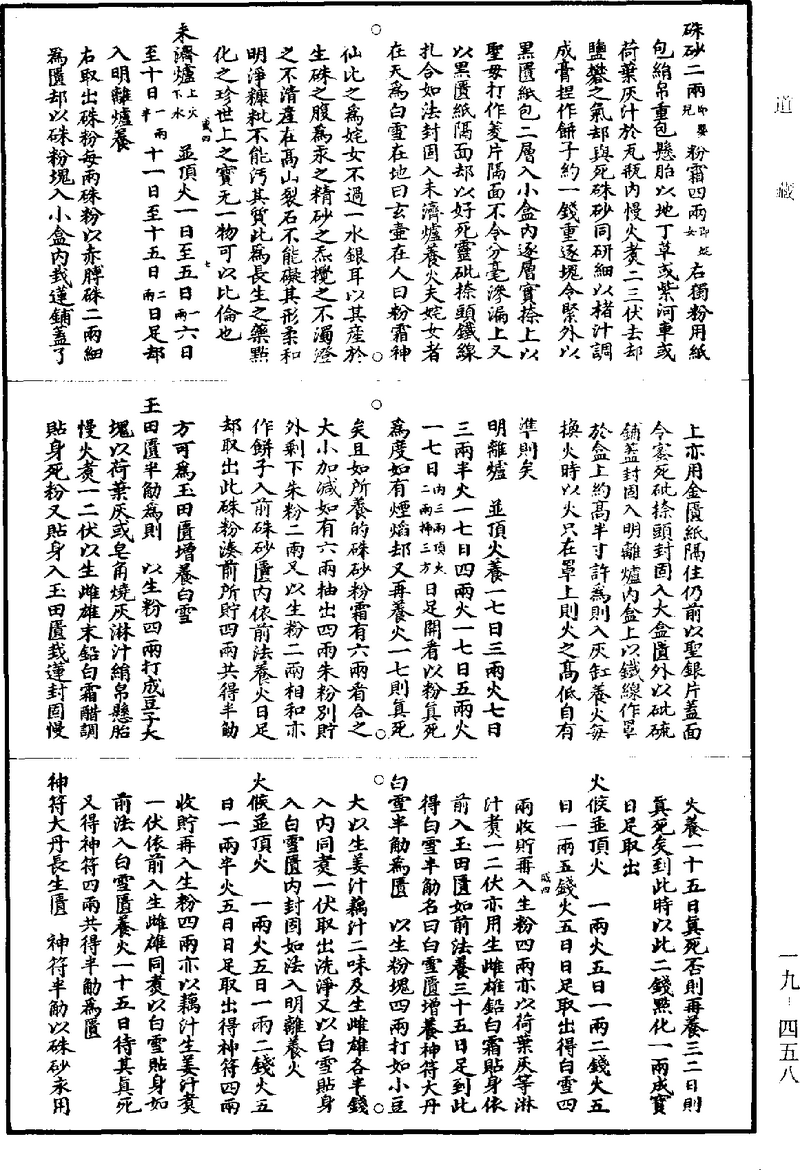 道藏
硃砂二兩即嬰兒粉霜四兩即姹女右獨粉用紙
包絹帛重包懸胎以地丁草或紫河車或
荷葉灰汁於瓦瓶內慢火煑二三伏去却
鹽礬之氣却與死硃砂同研細以楮汁調
成膏揑作餅子約一錢重逐塊令緊外以
黑匱紙包二層入小盒內逐層實捺上以
聖母打作菱片隔面不令分毫滲漏上又
以黑匱紙隔面却以好死靈砒捺頭鐵線
扎合如法封固入未濟爐養火夫姹女者
在天爲白雪在地曰玄壺在人曰粉霜神
仙比之爲姹女不過一水銀耳以其產於
生硃之腹爲汞之精砂之炁攪之不濁澄
之不清產在髙山裂石不能礙其形柔和
明淨糠粃不能污其質此爲長生之藥點
化之珍世上之寶无一物可以比倫也
未濟爐上火下水 並頂火一日至五日一兩六日
至十日一兩半十一日至十五日二兩日足却
入明離爐養
右取出硃粉每兩硃粉以赤脾硃二兩細
爲匱却以硃粉塊入小盒內栽蓮鋪蓋了
上亦用金匱紙隔住仍前以聖銀片蓋面
令寔死砒捺頭封固入大盒匱外以砒硫
鋪蓋封固入明離爐內盒上以鐵線作罩
於盒上約髙半寸許爲則入灰缸養火每
換火時以火只在罩上則火之髙低自有
準則矣
明離爐 並頂火養一七日三兩火七日
三兩半火一七日四兩火一七日五兩火
一七日內三兩頂火二兩揷三方日足開看以粉真死
爲度如有煙焰却又再養火一七則真死
矣且如所養的硃砂粉霜有六兩看合之
大小加減如有六兩抽出四兩朱粉別貯
外剩下朱粉二兩又以生粉二兩相和亦
作餅子入前硃砂匱內依前法養火日足
却取出此硃粉湊前所貯四兩共得半觔
方可爲玉田匱增養白雪
玉田匱半觔爲則 以生粉四兩打成豆子大
塊以荷葉灰或皂角燒灰淋汁絹帛懸胎
慢火煑一二伏以生雌雄末鉛白霜醋調
貼身死粉又貼身入玉田匱栽蓮封固慢
火養一十五日真死否則再養三二日則
真死矣到此時以此二錢點化一兩成寶
日足取出
火候並頂火 一兩火五日一兩二錢火五
日一兩五錢火五日日足取出得白雪四
兩收貯再入生粉四兩亦以荷葉灰等淋
汁煑一二伏亦用生雌雄鉛白霜貼身依
前入玉田匱如前法養三十五日足到此
得白雪半觔名曰白雪匱增養神符大丹
白雪半觔爲匱 以生粉塊四兩打如小豆
大以生姜汁藕汁二味及生雌雄各半錢
入內同煑一伏取出洗淨又以白雪貼身
入白雪匱內封固如法入明離養火
火候並頂火 一兩火五日一兩二錢火五
日一兩半火五日日足取出得神符四兩
收貯再入生粉四兩亦以藕汁生姜汁煑
一伏依前入生雌雄同煑以白雪貼身如
前法入白雪匱養火一十五日待其真死
又得神符四兩共得半觔爲匱
神符大丹長生匱 神符半觔以硃砂汞用
一九-四五八